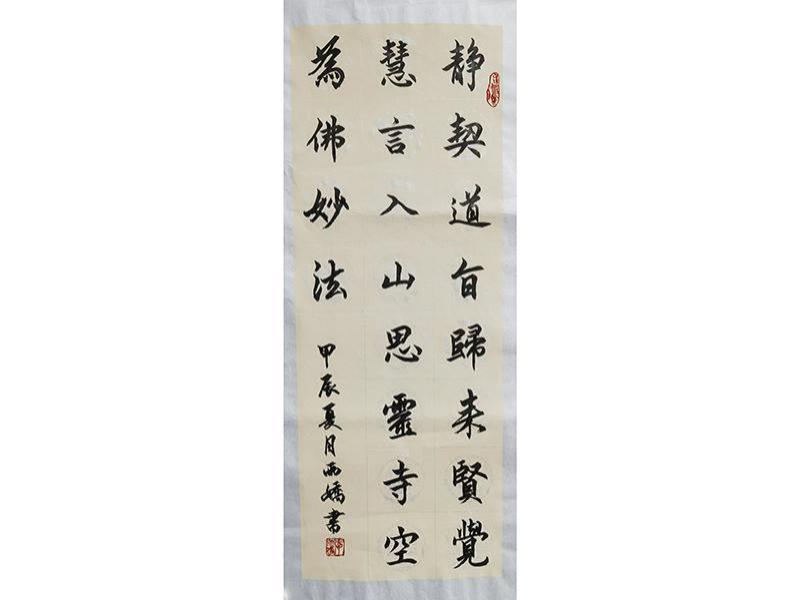 静契道旨歸来賢覺
慧言入山思靈寺空
為佛妙法
甲辰夏月雨嬌書